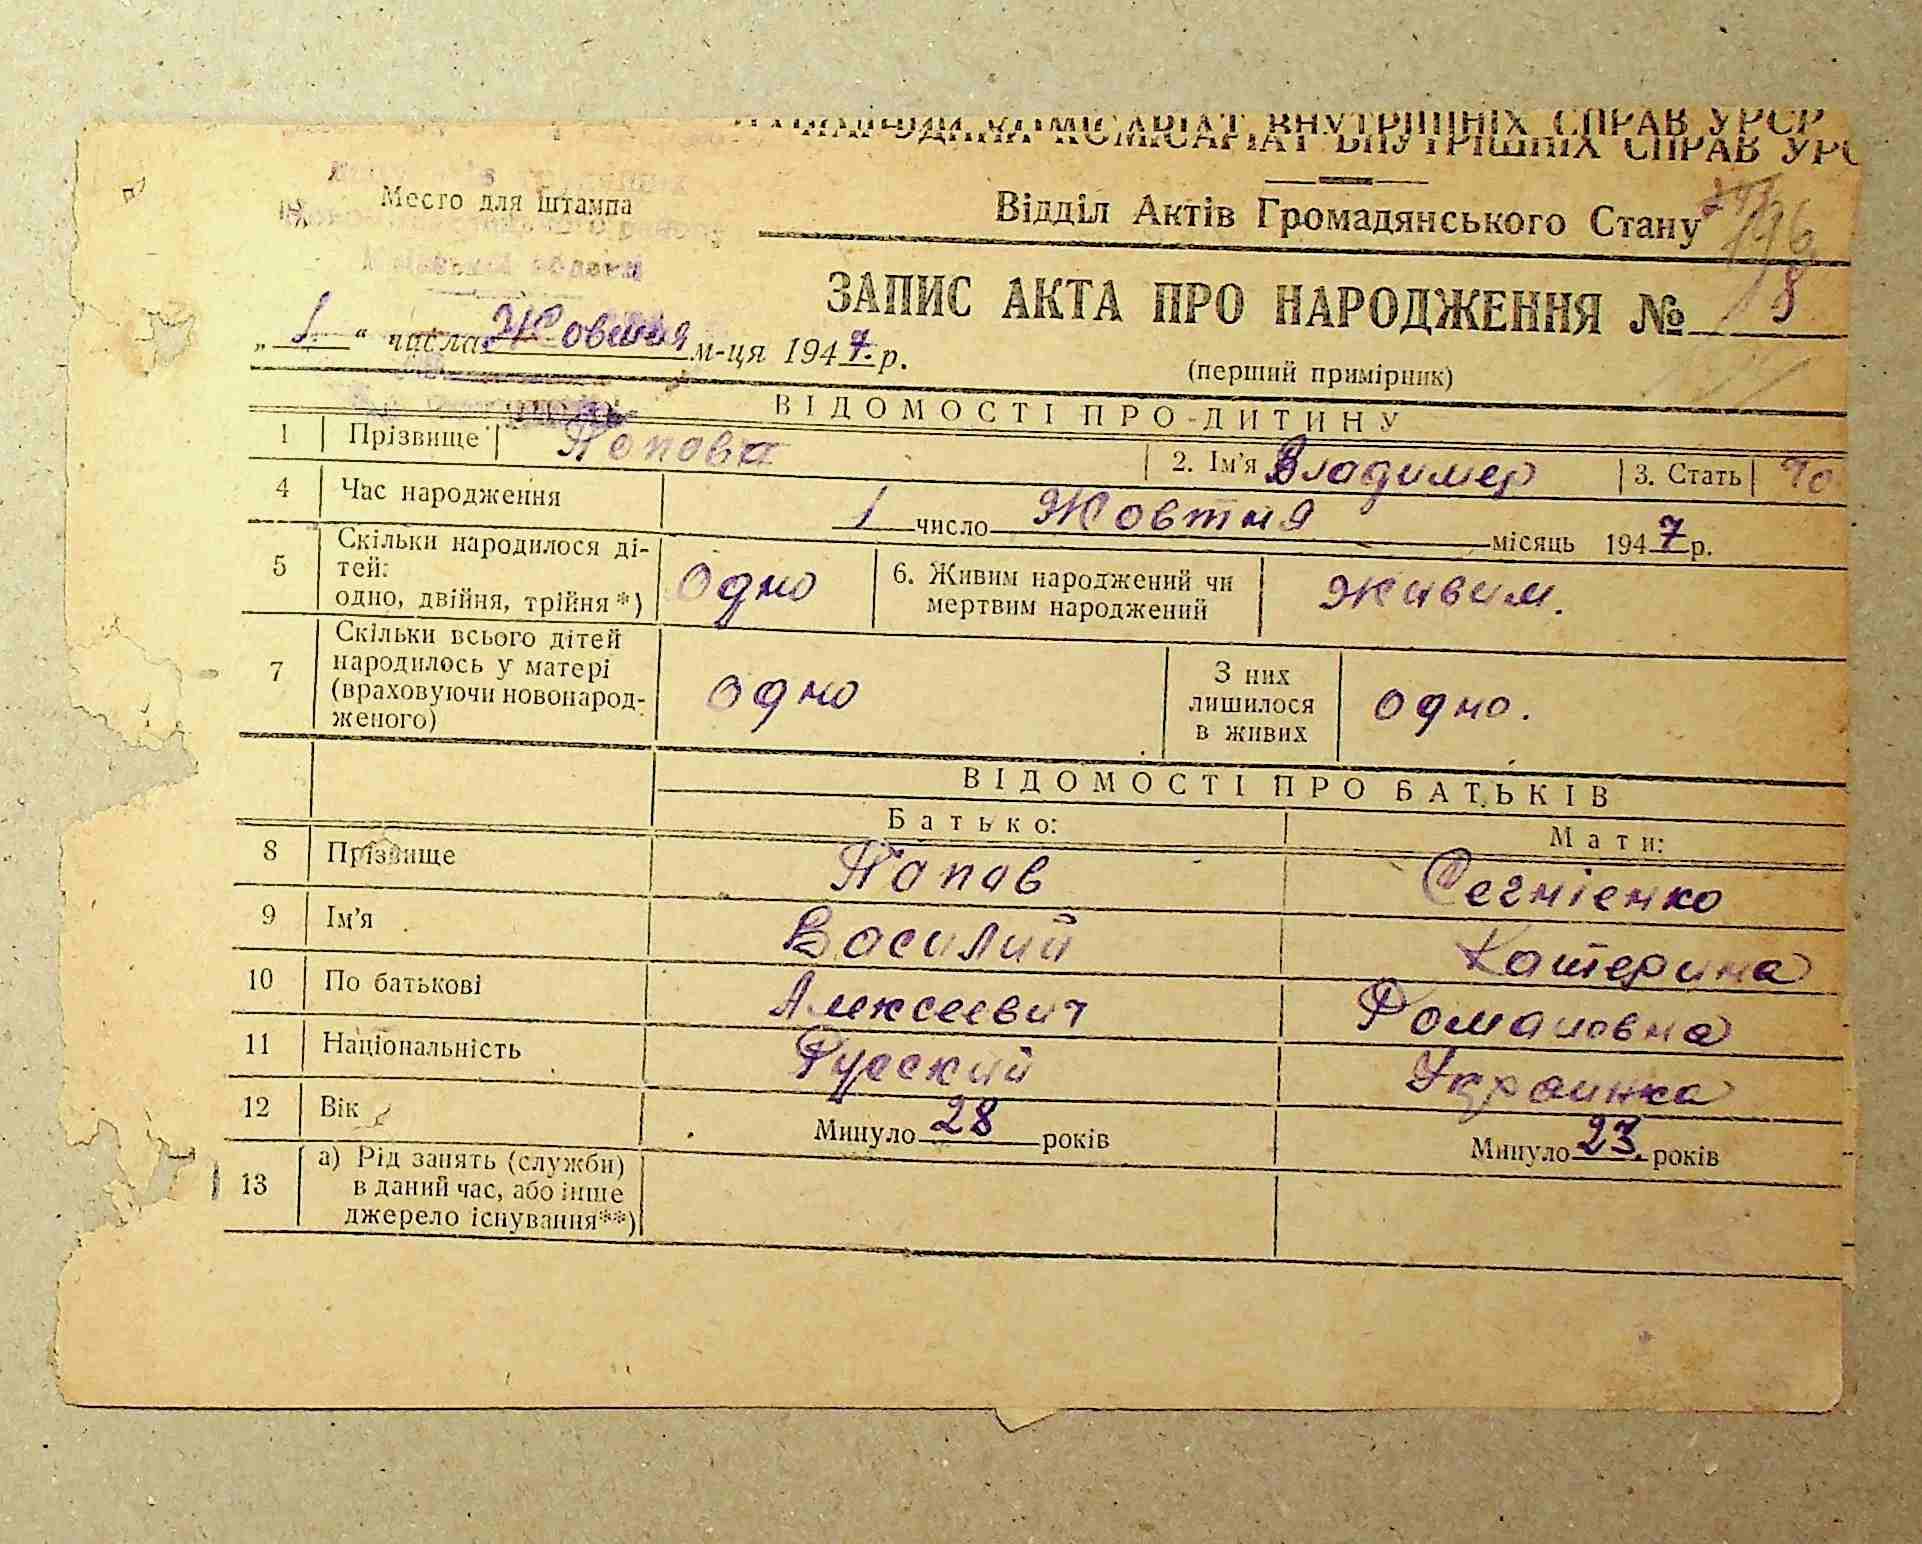 КОМІСАРІАТ ВНУТРІШНІХ СПРАВ УРСР
Место для штампа
Відділ Актів Громадянського Стану
196
ЗАПИС АКТА ПРО НАРОДЖЕННЯ № 8
„ 1 “ числа Жовтня м-ця 1947 р.
(перший примірник)
ВІДОМОСТІ ПРО ДИТИНУ
1 Прізвище Попова 2. Ім'я Владимер 3. Стать
4 Час народження 1 число Жовтня місяць 1947 р.
5 Скільки народилося ді-
тей:
одно, двійня, трійня*) одно 6. Живим народжений чи
мертвим народжений живим.
7 Скільки всього дітей
народилось у матері
(враховуючи новонарод-
женого) одно З них
лишилося
в живих одно.
ВІДОМОСТІ ПРО БАТЬКІВ
Батько: Мати:
8 Прізвище Попов
9 Ім'я Василий Катерина
10 По батькові Алексеевич Романовна
11 Національність Русский Украинка
12 Вік Минуло 28 років Минуло 23 років
13 а) Рід занять (служби)
в даний час, або інше
джерело існування**)